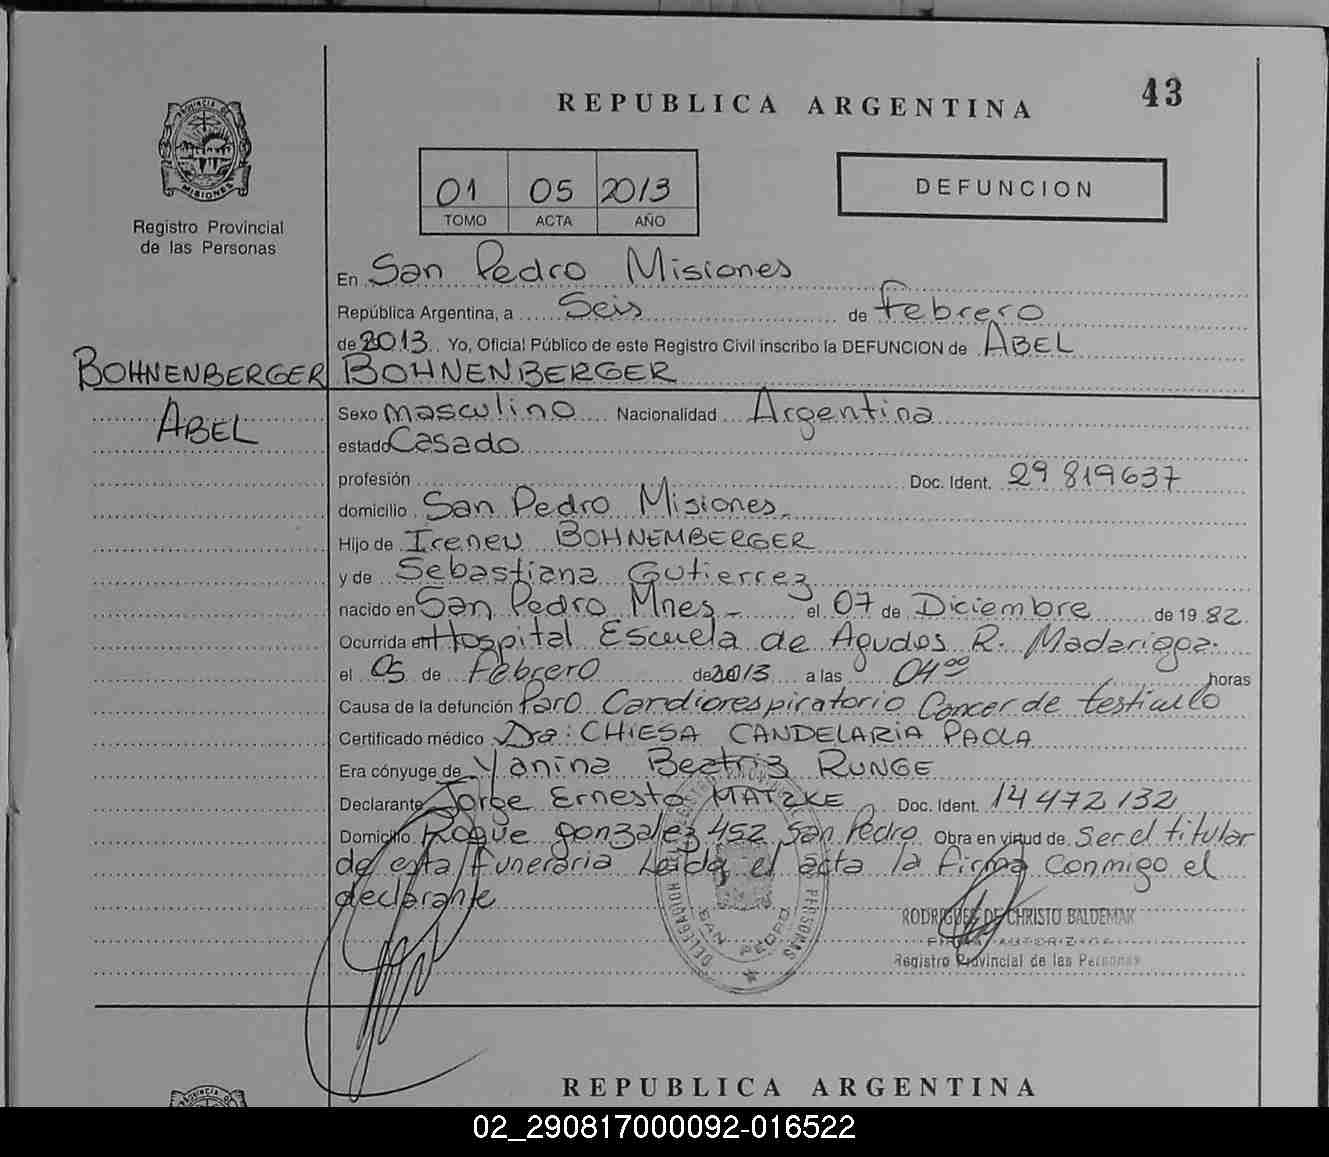 43
REPUBLICA ARGENTINA
PROVINCIA DE
MISIONES
Registro Provincial
de las Personas
01 05 2013
TOMO ACTA AÑO
DEFUNCION
En San Pedro Misiones
República Argentina, a Seis de febrero
de 2013 Yo, Oficial Público de este Registro Civil inscribo la DEFUNCION de ABEL
BOHNENBERGER BOHNENBERGER
ABEL
Sexo masculino Nacionalidad Argentina
estado Casado
profesión Doc. Ident. 29 819637
domicilio San Pedro Misiones
Hijo de Ireneu BOHNEMBERGER
y de Sebastiana Gutierrez
nacido en San Pedro Mnes- el 07 de Diciembre de 19 82
Ocurrida en Hospital Escuela de Agudos R. Madariaga.
el 05 de Febrero de 2013 a las 04⁰⁰ horas
Causa de la defunción Paro Cardiorespiratorio Cancer de testiculo
Certificado médico Dra: CHIESA CANDELARIA PAOLA
Era cónyuge de Yanina Beatriz RUNGE
Declarante Jorge Ernesto MATZKE Doc. Ident. 14 472 132
Domicilio Roque gonzalez 452 San Pedro Obra en virtud de Ser el titular
de esta funeraria Leida el acta la firma conmigo el
declarante
DELEGACION SAN PEDRO PERSONAS
RODRIGUES DE CHRISTO BALDEMAR
FIRMA AUTORIZADA
Registro Provincial de las Personas
REPUBLICA ARGENTINA
02_290817000092-016522